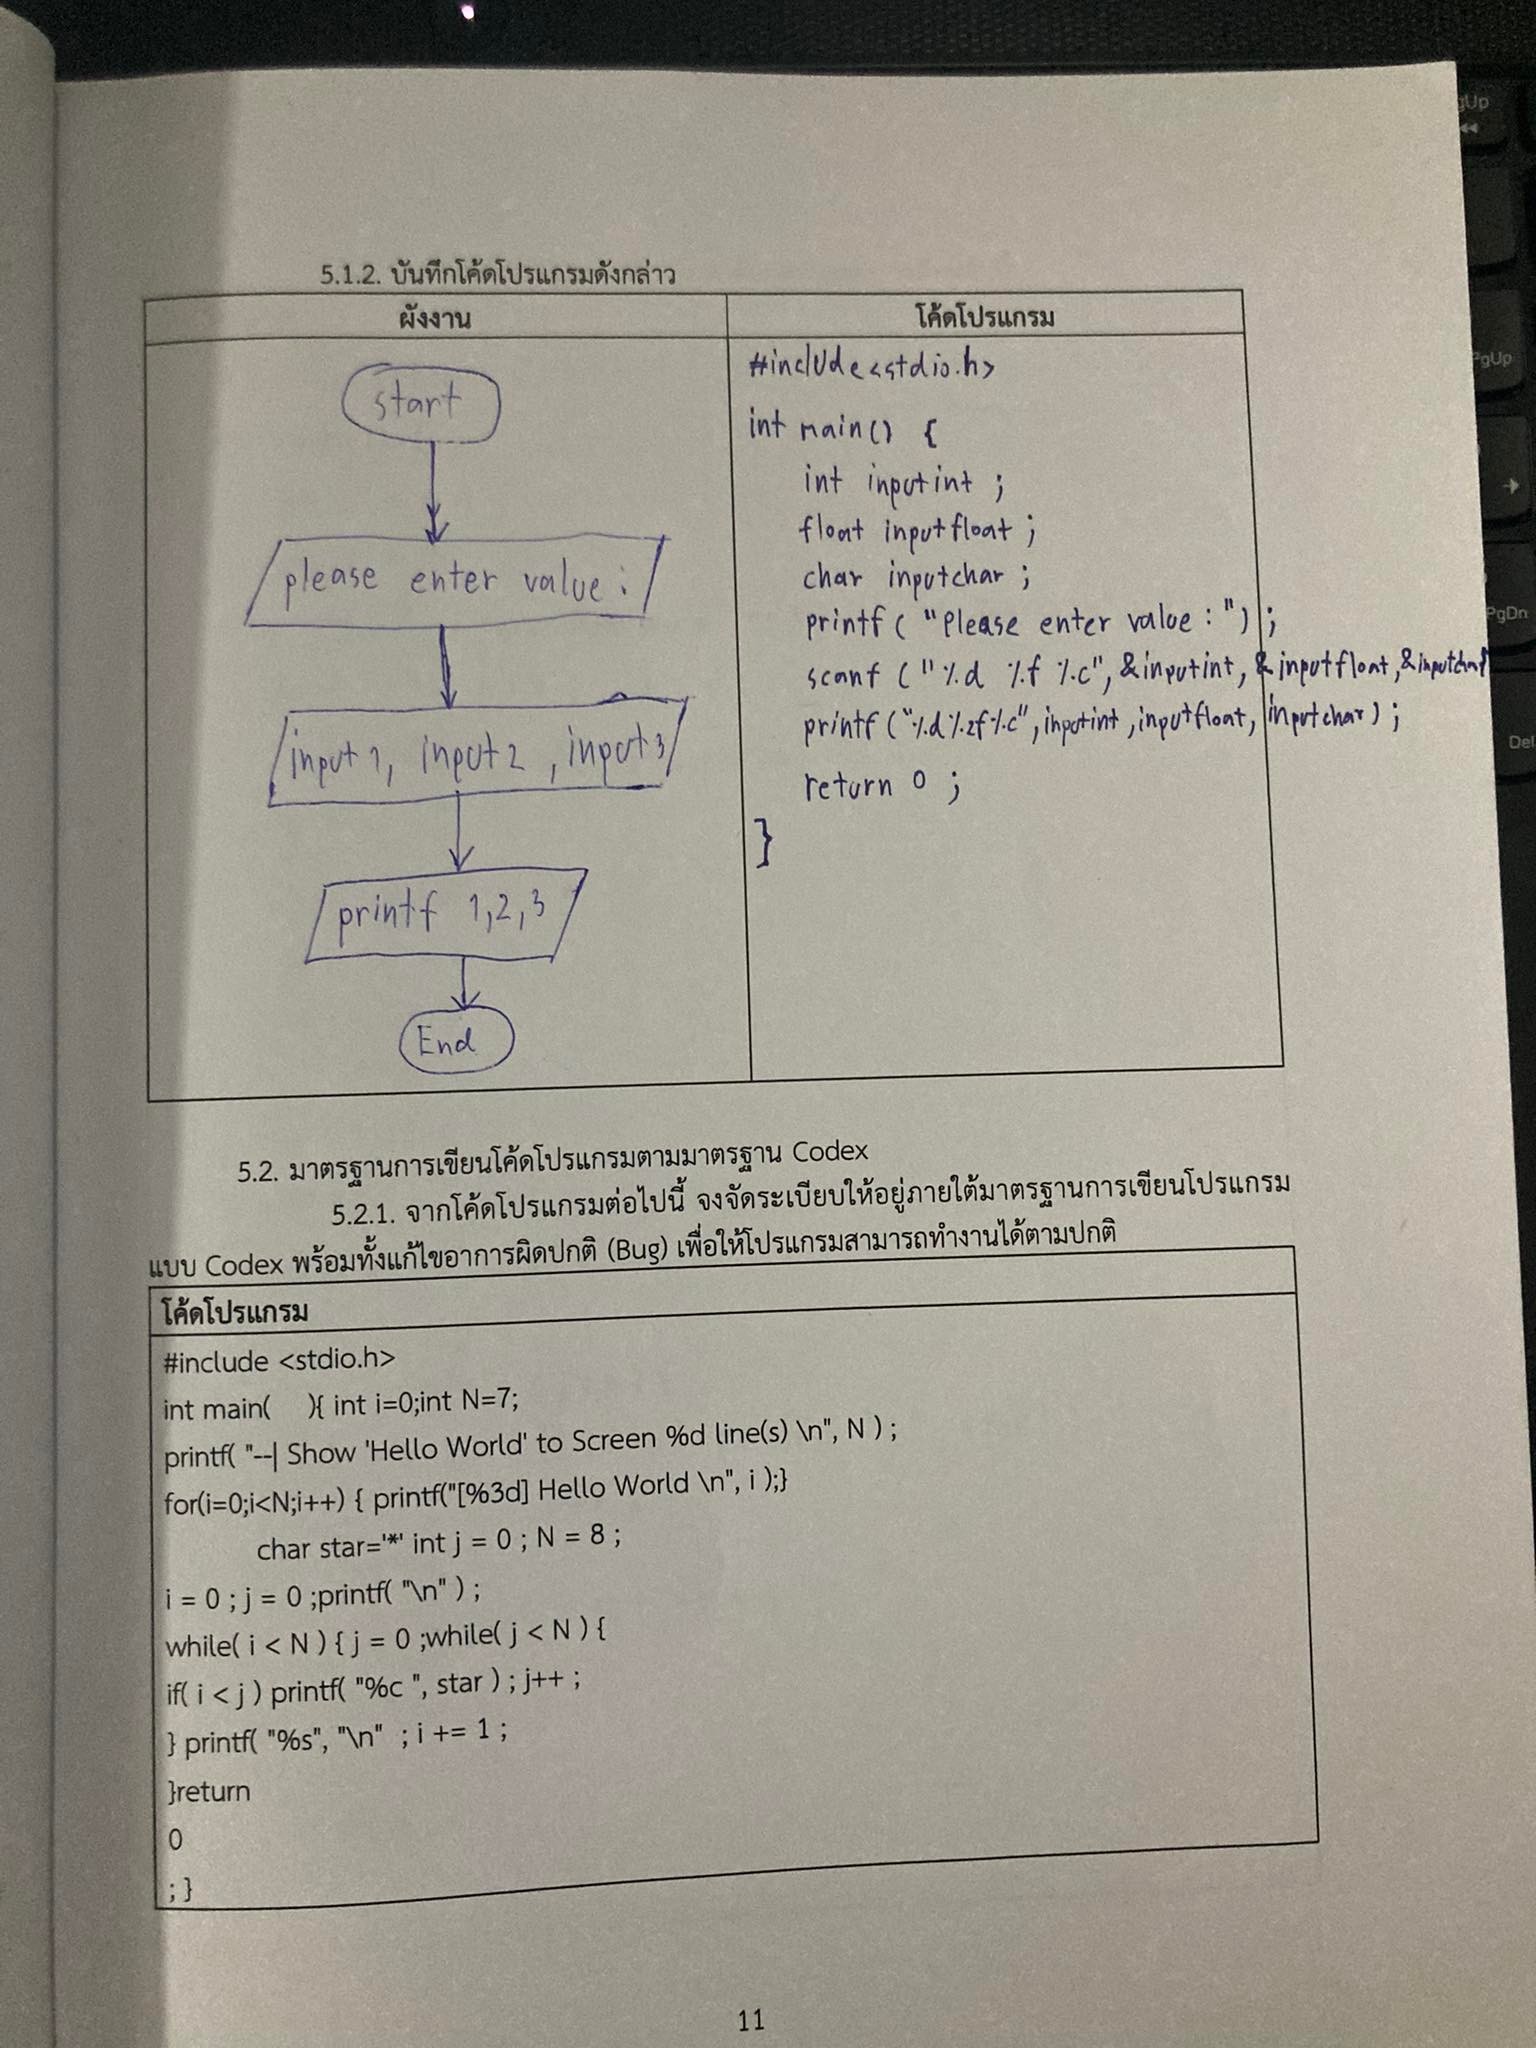 5.1.2. บันทึกโค้ดโปรแกรมดังกล่าว
ผังงาน
โค้ดโปรแกรม
start
please enter value :
input 1, input 2 , input 3
printf 1,2,3
End
#include <stdio.h>
int main() {
int inputint ;
float inputfloat ;
char inputchar ;
printf ( "Please enter value : ") ;
scanf ( "%d %f %c", &inputint, &inputfloat, &inputchar
printf ("%d%.2f%c", inputint , inputfloat, inputchar) ;
return 0 ;
}
5.2. มาตรฐานการเขียนโค้ดโปรแกรมตามมาตรฐาน Codex
5.2.1. จากโค้ดโปรแกรมต่อไปนี้ จงจัดระเบียบให้อยู่ภายใต้มาตรฐานการเขียนโปรแกรม
แบบ Codex พร้อมทั้งแก้ไขอาการผิดปกติ (Bug) เพื่อให้โปรแกรมสามารถทำงานได้ตามปกติ
โค้ดโปรแกรม
#include <stdio.h>
int main( ){ int i=0;int N=7;
printf( "--| Show 'Hello World' to Screen %d line(s) \n", N ) ;
for(i=0;i<N;i++) { printf("[%3d] Hello World \n", i );}
char star='*' int j = 0 ; N = 8 ;
i = 0 ; j = 0 ;printf( "\n" ) ;
while( i < N ) { j = 0 ;while( j < N ) {
if( i < j ) printf( "%c ", star ) ; j++ ;
} printf( "%s", "\n" ; i += 1 ;
}return
0
; }
11
PgUp
PgUp
PgDn
Del